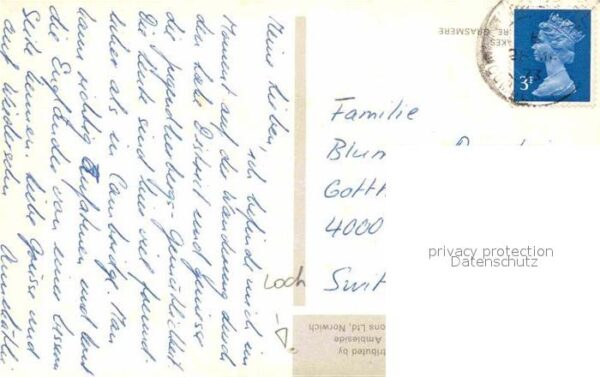 Meine Lieben, ich befinde mich im
Moment auf der Wanderung durch
den Lake District und geniesse
die Jugendherbergs-Gemütlichkeit.
Die Leute sind hier viel freund-
licher als in Cambridge. Man
kann richtig aufatmen und lernt
die Engländer von einer bessern
Seite kennen. Liebe Grüsse und
auf Wiedersehn
Loch
GRASMERE
AKES
3P
Familie
Blum
Gotth
4000
Swit
privacy protection
Datenschutz
tributed by
Ambleside
ons Ltd, Norwich